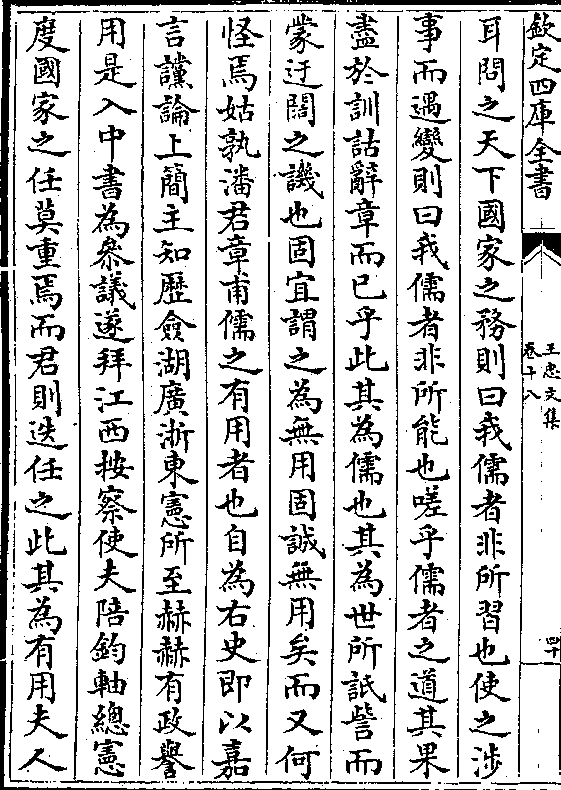 欽定四庫全書
王忠文集
卷十八
四十
耳問之天下國家之務則曰我儒者非所習也使之涉
事而遇變則曰我儒者非所能也嗟乎儒者之道其果
盡於訓詁辭章而已乎此其為儒也其為世所詆訾而
蒙迂闊之譏也固宜謂之為無用固誠無用矣而又何
怪焉姑孰潘君章甫儒之有用者也自為右史即以嘉
言讜論上簡主知歷僉湖廣浙東憲所至赫赫有政譽
用是入中書為叅議遂拜江西按察使夫陪鈞軸總憲
度國家之任莫重焉而君則迭任之此其為有用夫人